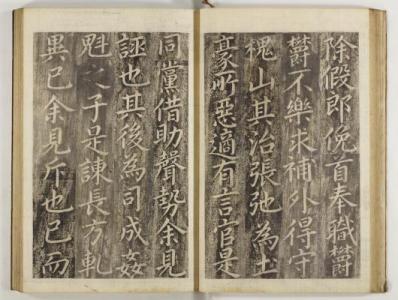 除假即俛首奉職欝
欝不樂求補外得守
槐山其治張弛為土
豪所惡適有言官是
同黨借助聲勢余見
誣也其後為司成姦
魁之子是諫長方軋
異己余見斥也已而